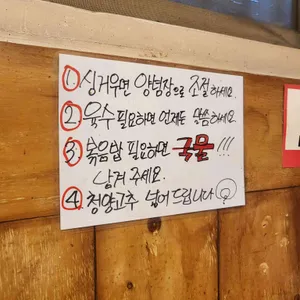 ① 싱거우면 양념장으로 조절하세요.
② 육수 필요하면 언제든 말씀하세요.
③ 볶음밥 필요하면 국물!!!
남겨 주세요.
④ 청양고추 넣어 드립니다